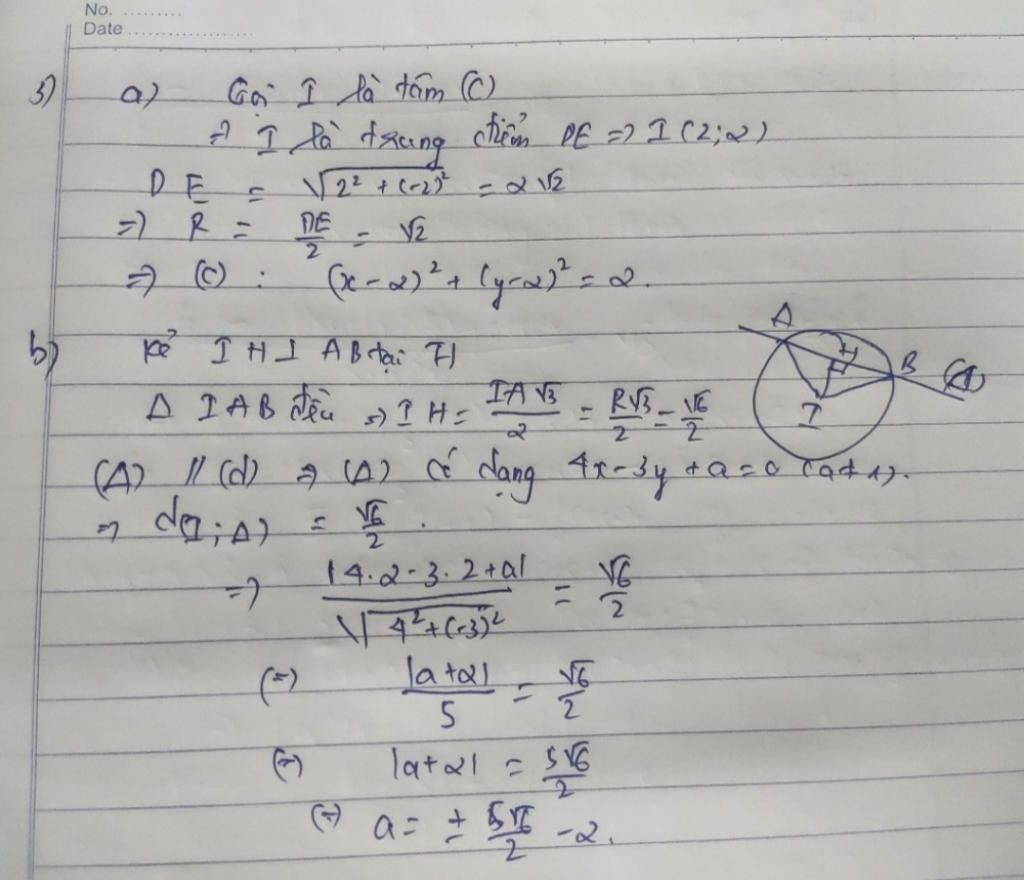 No. .........
Date ...................
3) a) Gọi I là tâm (C)
=> I là trung điểm DE => I (2;2)
DE = √(2² + (-2)²) = 2√2
=> R = DE/2 = √2
=> (C) : (x-2)² + (y-2)² = 2.
b) Kẻ IH ⊥ AB tại H
Δ IAB đều => IH = IA√3/2 = R√3/2 = √6/2
(Δ) // (d) => (Δ) có dạng 4x-3y+a=0 (a≠1).
=> d(I;Δ) = √6/2.
=> |4.2-3.2+a|/√(4²+(-3)²) = √6/2
(=) |a+2|/5 = √6/2
(=) |a+2| = 5√6/2
(=) a = ± 5√6/2 - 2.
A
H
B
I